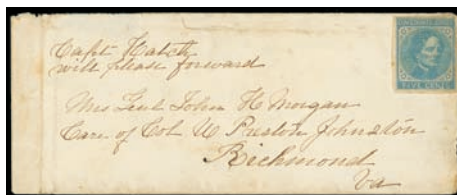 Capt Hatch
will please forward
Mrs Genl John H Morgan
Care of Col W Preston Johnston
Richmond
Va
FIVE CENTS